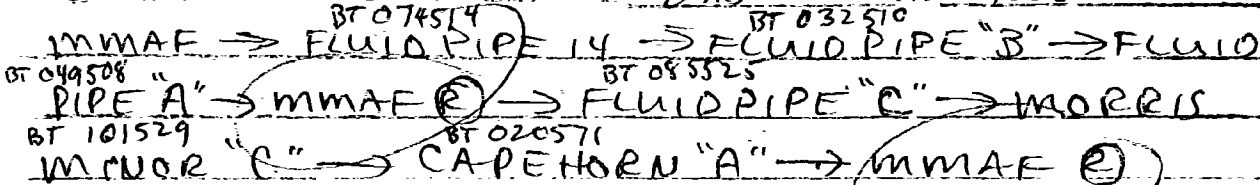 BT 074514 BT 032510
MMAF → FLUID PIPE 14 → FLUID PIPE "B" → FLUID
BT 049508 BT 085525
PIPE "A" → MMAF Ⓡ → FLUID PIPE "C" → MORRIS
BT 101529 BT 020571
MINOR "C" → CAPEHORN "A" → MMAF Ⓡ